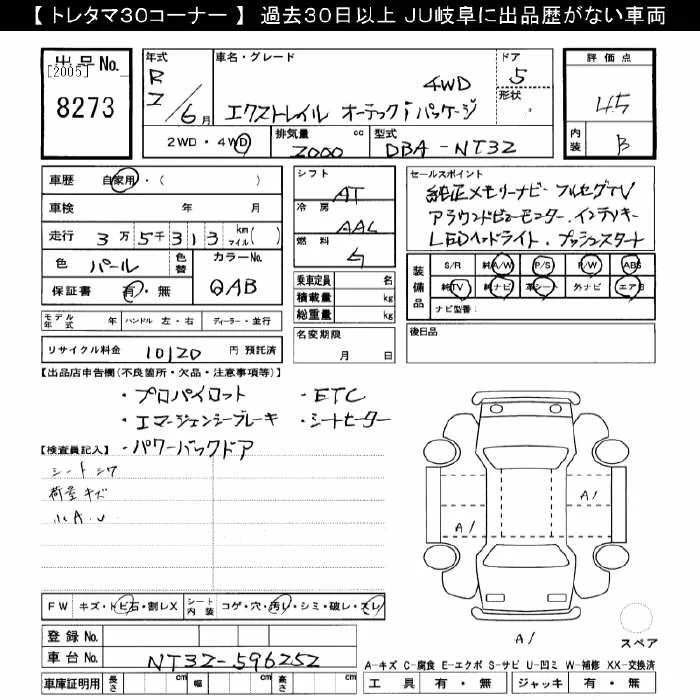 【 トレタマ30コーナー 】 過去30日以上 JU岐阜に出品歴がない車両
出品No.
[2005]
8273
年式 車名・グレード ドア 評価点
R 4WD 5
2/6月 エクストレイル オーテック i パッケージ 形状 4.5
2WD・4WD 排気量 cc 型式 内装 B
2000 DBA-NT32
車歴 自家用・( )
車検 年 月
走行 3万5千313 km マイル( )
色 パール 色替 カラーNo. QAB
保証書 有・無
モデル年式 年 ハンドル 左・右 ディーラー・並行
リサイクル料金 10120 円 預託済
シフト AT
冷房 AAC
燃料 ガ
乗車定員 名
積載量 kg
総重量 kg
名変期限
月 日
セールスポイント
純正メモリーナビ フルセグTV
アラウンドビューモニター.インテリキー
LEDヘッドライト.プッシュスタート
装備品 S/R 純A/W P/S P/W ABS
純TV 純ナビ 革シート 外ナビ エアB
ナビ型番:
後日品
【出品店申告欄(不良箇所・欠品・注意事項等)】
・プロパイロット ・ETC
・エマージェンシーブレーキ ・シートヒーター
・パワーバックドア
【検査員記入】
シートシワ
荷室キズ
小A.U
A1
A1
A1
スペア
FW キズ・トビ石・割レX シート内装 コゲ・穴・汚レ・シミ・破レ・スレ
登録No.
車台No. NT32-596252
車庫証明用 長さ cm 幅 cm 高さ cm
A-キズ C-腐食 E-エクボ S-サビ U-凹ミ W-補修 XX-交換済
工具 有・無 ジャッキ 有・無